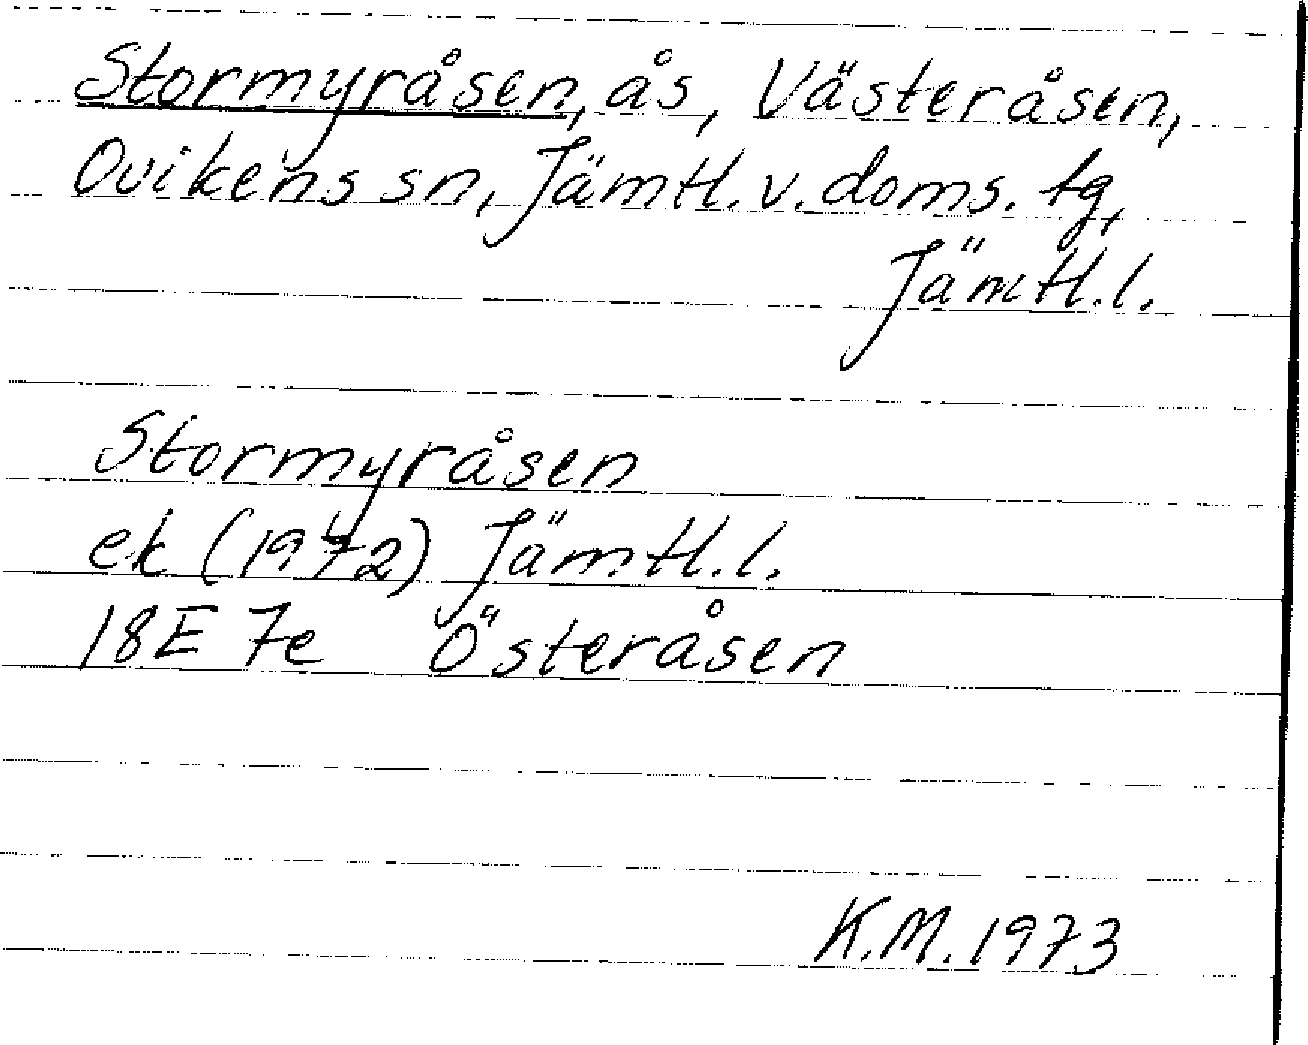 Stormyråsen, ås, Västeråsen,
Ovikens sn, Jämtl. v. doms. tg,
Jämtl. l.
Stormyråsen
ek (1972) Jämtl. l.
18E 7e Österåsen
K.M. 1973